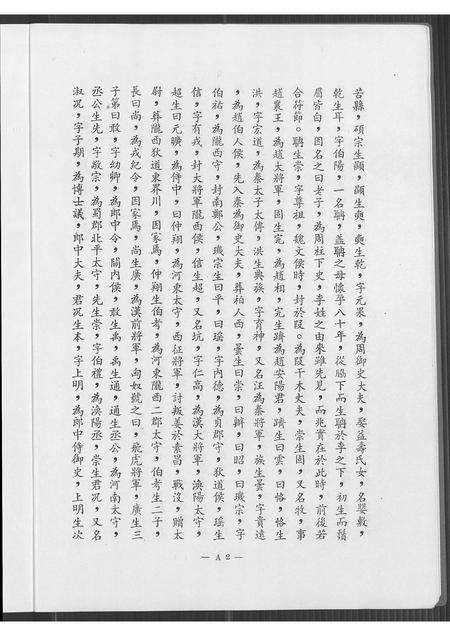 苦縣，碩宗生顯，顯生奭，奭生乾，字元杲，為周御史大夫，娶益壽氏女，名嬰敷，
乾生耳，字伯陽，一名聃，蓋聃之母懷孕八十年，從脇下而生聃於李之下，初生而鬚
眉皆白，因名之曰老子，為周柱下史，李姓之由來雖先見，而兆實在於此時，前後若
合符節。聃生崇，字尊祖，魏文侯時，封於叚。為叚干木丈夫，崇生固，又名牧，事
趙襄王，為趙大將軍，固生完，為趙相，完生躋為趙安陽君，躋生曰雲，曰恪，恪生
洪，字宏道，為秦太子太傅，洪生興族，字育神，又名汪為秦將軍，族生曇，字貴遠
，為趙伯人侯，先入秦為御史大夫，葬柏人西，曇生曰崇，曰辨，曰昭，曰璣宗，字
伯祐，為隴西守，封南鄭公，璣宗生曰平，曰瑤，字內德，為貞郡守，狄道侯，瑤生
信，字有戎，封大將軍隴西侯，信生超，又名坑，字仁高，為漢大將軍，渙陽太守，
超生曰元曠，為侍中，曰仲翔，為河東太守，西征將軍，討叛羌於素昌，戰沒，贈太
尉，葬隴西狄道東界川，因家馬，仲翔生伯考，為河東隴西二郡太守，伯考生二子，
長曰尚，為戎紀令，因家馬，尚生廣，為漢前將軍，匈奴號之曰，飛虎將軍，廣生三
子第曰敢，字幼卿，為郎中令，關內侯，敢生禹，禹生通，通生丞公，為河南太守，
丞公生先，字敬宗，為蜀郡北平太守，先生崇，字伯禮，為渙陽丞，崇生君況，又名
淑況，字子期，為博士議，郎中大夫，君況生本，字上明，為郎中侍御史，上明生次
— A 2 —